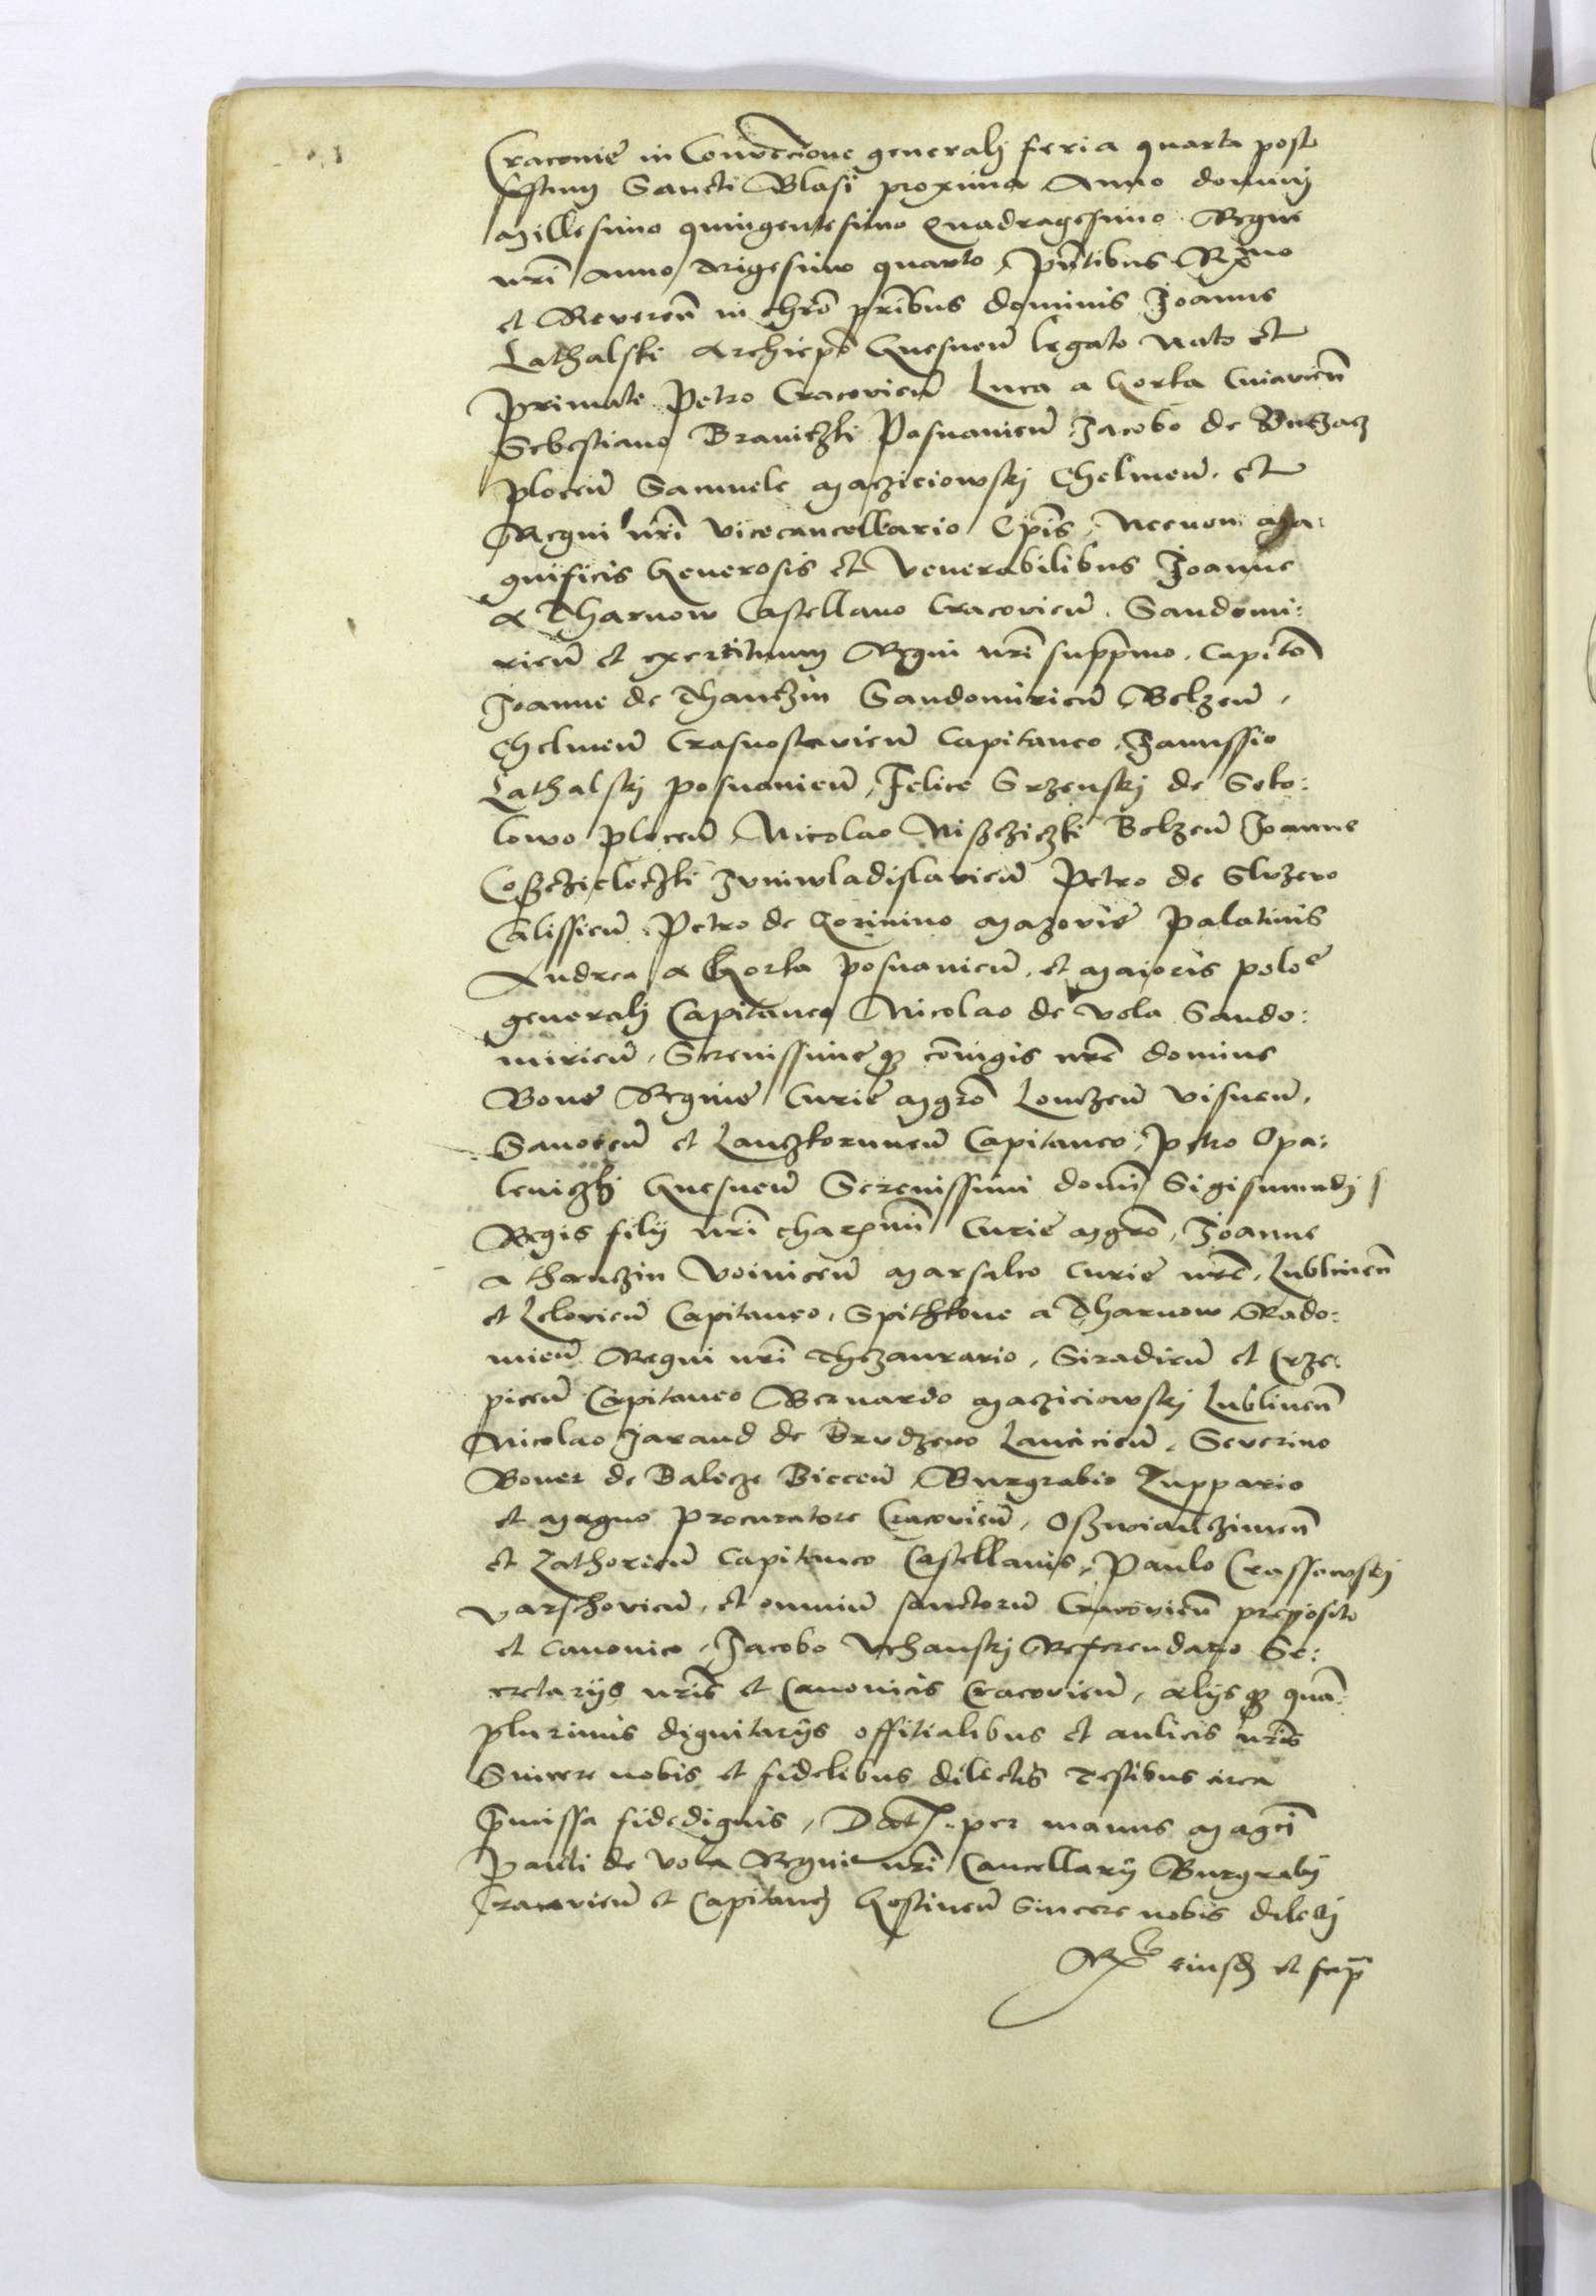 Cracovie in Conventione generalj feria quarta post
festum Sancti Blasi proxima Anno dominj
Millesimo quingentesimo Quadragesimo Regni
nrĩ anno trigesimo quarto, Pn̄tibus Rx̄mo
et Reveren̄ in chrõ pr̄ibus dominis Joanne
Lathalski Archiepõ Gnesnen̄ legato nato et
Primate Petro Cracovien̄ Luca a Gorka Cuiavien̄
Sebestiano Braniczki Posnanien̄ Jacobo de Buczacz
plocen̄ Samuele Maczieiowskj Chelmen̄. et
Regni nrĩ vicecancellario Ep̄is, Necnon Ma:
gnificis Generosis et Venerabilibus Joanne
a Tharnow Castellano Cracovien̄. Sandomi:
rien̄ et exercituum Regni nrĩ supp̄mo. Capitõ
Joanne de Thanczin Sandomirien̄ Belzen̄,
Chelmen̄ Crasnostavien̄ Capitaneo, Janussio
Lathalskj posnanien̄, Felice Srzenskj de Soko:
lowo plocen̄, Nicolao Nisczizki Belzen̄ Joanne
Cosczieleczki Juniwladislavien̄ Petro de Sluzewo
Calissien̄. Petro de Gorinino Mazovie Palatinis
Andrea a Gorka posnanien̄. et Maioris poloẽ
generalj Capitaneo Nicolao de Vola Sando:
mirien̄. Serenissimeq3 cõiugis nrẽ domine
Bone Regine Curie Mgrõ Lomzen̄ Visnen̄.
Sanocen̄ et Lanczkorunen̄ Capitaneo, Petro Opa:
leniczkj Gnesnen̄ Serenissimi domĩ Sigismundj
Regis filij nrĩ charx̄mi Curie Mgrõ, Joanne
a thanczin Voinicen̄ Marsalco Curie nrẽ. Lublinen̄
et Lelovien̄ Capitaneo, Spithkone a Tharnow Rado:
mien̄ Regni nrĩ Thezaurario, Siradien̄ et Crze:
picen̄ Capitaneo Bernardo Macziciowskj Lublinen̄
Nicolao Jarand de Brudzewo Lancicien̄. Severino
Boner de Balicze Biecen̄, Burgrabio Zuppario
et Magno Procuratore Cracovien̄, Oszwianczimen̄
et Zathorien̄ Capitaneo Castellanis, Paulo Crassowskj
Varschovien̄. et omniũ sanctorũ Cracovien̄ preposito
et Canonico, Jacobo Vchanskj Referendario Se:
cretarijs nrĩs et Canonicis Cracovien̄, alijsq3 quã
plurimis dignitarijs offitialibus et aulicis nrĩs
Sincere nobis et fidelibus dilectis Testibus circa
p̄missa fidedignis, Dat. per manus Magcĩ
Pauli de Vola Regni nrĩ Cancellarij Burgrabij
Cracovien̄ et Capitanej Gostinen̄ Sincere nobis dilectj
Rx̄ eiusd et scrip